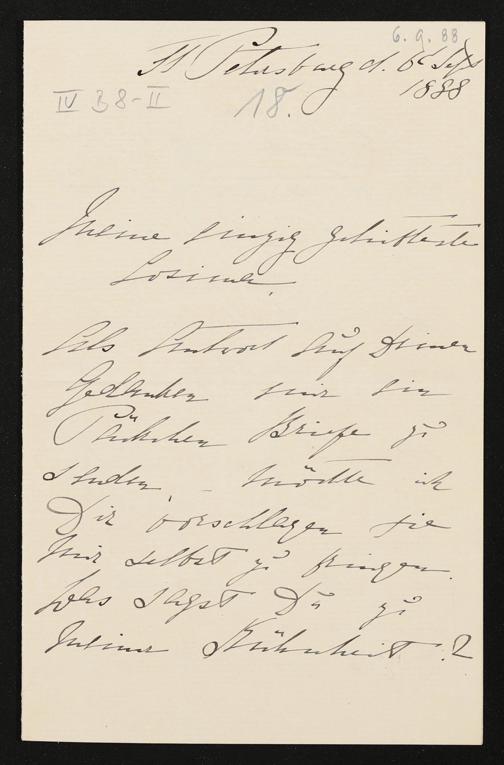 6.9.88
St Petersburg d. 6t Sept
1888
IV B 8-II
18.
Meine einzig geliebteste
Cosima,
Als Antwort auf Deinen
Gedanken mir ein
Päckchen Briefe zu
senden, – möchte ich
Dir vorschlagen sie
mir selbst zu bringen.
Was sagst Du zu
meiner Kühnheit?